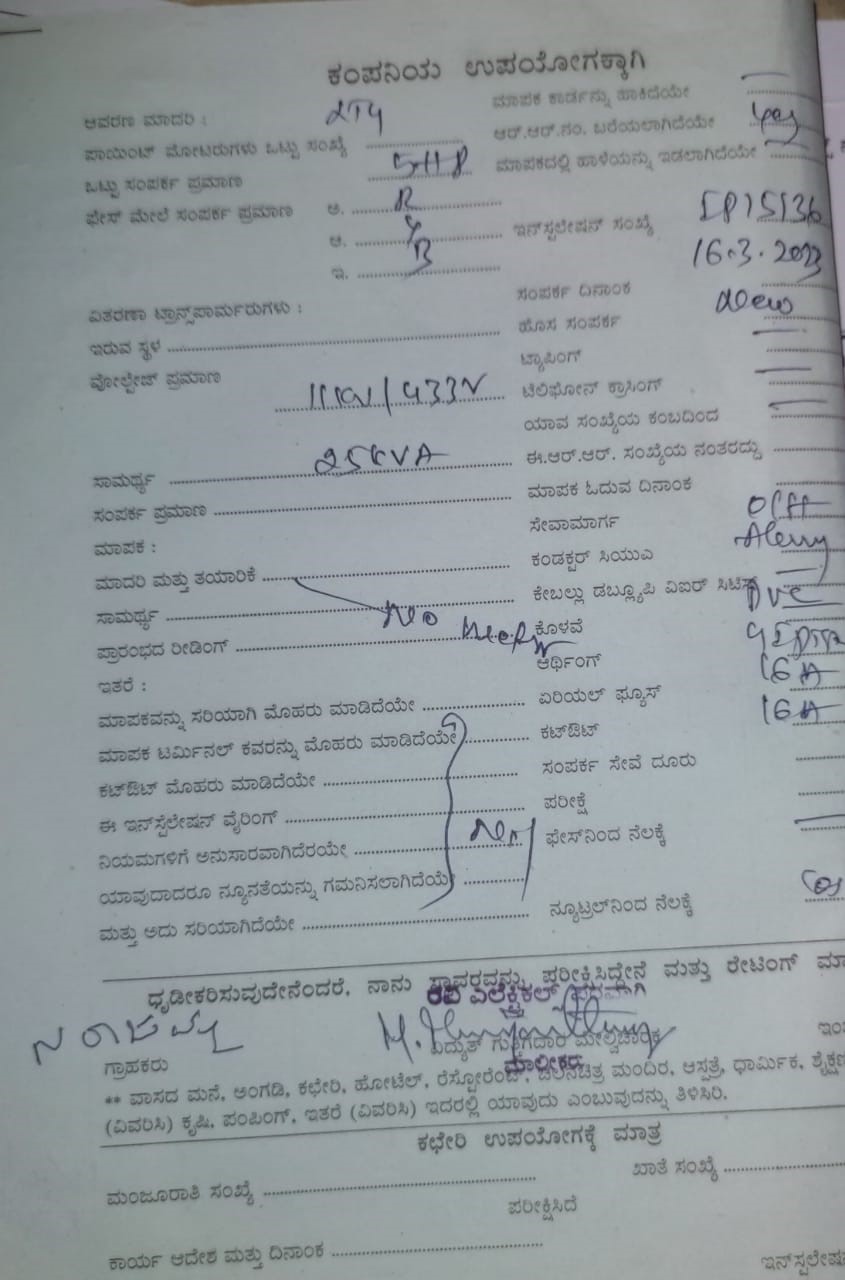 ಕಂಪನಿಯ ಉಪಯೋಗಕ್ಕಾಗಿ
ಆವರಣ ಮಾದರಿ :
ಮಾಪಕ ಕಾರ್ಡನ್ನು ಹಾಕಿದೆಯೇ
ಪಾಯಿಂಟ್ ಮೋಟರುಗಳು ಒಟ್ಟು ಸಂಖ್ಯೆ
ಆರ್.ಆರ್.ನಂ. ಬರೆಯಲಾಗಿದೆಯೇ yes
ಒಟ್ಟು ಸಂಪರ್ಕ ಪ್ರಮಾಣ 5HP
ಮಾಪಕದಲ್ಲಿ ಹಾಳೆಯನ್ನು ಇಡಲಾಗಿದೆಯೇ
ಫೇಸ್ ಮೇಲೆ ಸಂಪರ್ಕ ಪ್ರಮಾಣ ಅ. R
ಆ. Y
ಇನ್‌ಸ್ಪಲೇಷನ್ ಸಂಖ್ಯೆ IP15136
ಇ. B
16.3.2023
ಸಂಪರ್ಕ ದಿನಾಂಕ
ವಿತರಣಾ ಟ್ರಾನ್ಸ್‌ಪಾರ್ಮರುಗಳು :
ಹೊಸ ಸಂಪರ್ಕ New
ಇರುವ ಸ್ಥಳ
ಟ್ಯಾಪಿಂಗ್
ವೋಲ್ಟೇಜ್ ಪ್ರಮಾಣ 11KV/433V
ಟೆಲಿಫೋನ್ ಕ್ರಾಸಿಂಗ್
ಯಾವ ಸಂಖ್ಯೆಯ ಕಂಬದಿಂದ
ಸಾಮರ್ಥ್ಯ 25KVA
ಈ.ಆರ್.ಆರ್. ಸಂಖ್ಯೆಯ ನಂತರದ್ದು
ಸಂಪರ್ಕ ಪ್ರಮಾಣ
ಮಾಪಕ ಓದುವ ದಿನಾಂಕ
ಮಾಪಕ :
ಸೇವಾಮಾರ್ಗ
ಮಾದರಿ ಮತ್ತು ತಯಾರಿಕೆ
ಕಂಡಕ್ಟರ್ ಸಿಯುಎ
ಸಾಮರ್ಥ್ಯ
ಕೇಬಲ್ಲು ಡಬ್ಲ್ಯೂಪಿ ವಿಐಆರ್
ಪ್ರಾರಂಭದ ರೀಡಿಂಗ್ No
ಕೊಳವೆ PVC
ಇತರೆ :
ಆರ್ಥಿಂಗ್
ಮಾಪಕವನ್ನು ಸರಿಯಾಗಿ ಮೊಹರು ಮಾಡಿದೆಯೇ
ಏರಿಯಲ್ ಫ್ಯೂಸ್ 16A
ಮಾಪಕ ಟರ್ಮಿನಲ್ ಕವರನ್ನು ಮೊಹರು ಮಾಡಿದೆಯೇ
ಕಟ್‌ಔಟ್ 16A
ಕಟ್‌ಔಟ್ ಮೊಹರು ಮಾಡಿದೆಯೇ
ಸಂಪರ್ಕ ಸೇವೆ ದೂರು
ಈ ಇನ್‌ಸ್ಪೆಲೇಷನ್ ವೈರಿಂಗ್
ಪರೀಕ್ಷೆ
ನಿಯಮಗಳಿಗೆ ಅನುಸಾರವಾಗಿದೆರಯೇ
ಫೇಸ್‌ನಿಂದ ನೆಲಕ್ಕೆ
ಯಾವುದಾದರೂ ನ್ಯೂನತೆಯನ್ನು ಗಮನಿಸಲಾಗಿದೆಯೆ
ಮತ್ತು ಅದು ಸರಿಯಾಗಿದೆಯೇ
ನ್ಯೂಟ್ರಲ್‌ನಿಂದ ನೆಲಕ್ಕೆ
ಧೃಡೀಕರಿಸುವುದೇನೆಂದರೆ, ನಾನು ಸ್ಥಾವರವನ್ನು ಪರೀಕ್ಷಿಸಿದ್ದೇನೆ ಮತ್ತು ರೇಟಿಂಗ್
ರವಿ ಎಲೆಕ್ಟ್ರಿಕಲ್
ವಿದ್ಯುತ್ ಗುತ್ತಿಗೆದಾರ ಮೇಲ್ವಿಚಾರಕ
ಗ್ರಾಹಕರು
ಮಾಲೀಕರು
** ವಾಸದ ಮನೆ, ಅಂಗಡಿ, ಕಛೇರಿ, ಹೋಟೆಲ್, ರೆಸ್ಟೋರೆಂಟ್, ಚಲನಚಿತ್ರ ಮಂದಿರ, ಆಸ್ಪತ್ರೆ, ಧಾರ್ಮಿಕ,
(ವಿವರಿಸಿ) ಕೃಷಿ, ಪಂಪಿಂಗ್, ಇತರೆ (ವಿವರಿಸಿ) ಇದರಲ್ಲಿ ಯಾವುದು ಎಂಬುವುದನ್ನು ತಿಳಿಸಿರಿ.
ಕಛೇರಿ ಉಪಯೋಗಕ್ಕೆ ಮಾತ್ರ
ಮಂಜೂರಾತಿ ಸಂಖ್ಯೆ
ಖಾತೆ ಸಂಖ್ಯೆ
ಪರೀಕ್ಷಿಸಿದೆ
ಕಾರ್ಯ ಆದೇಶ ಮತ್ತು ದಿನಾಂಕ